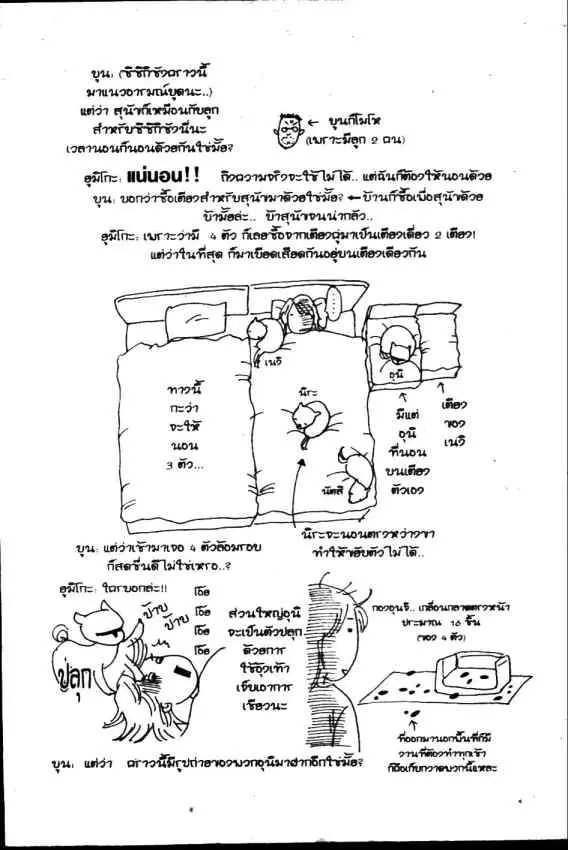 บุน: (ชิชิกิชัวคราวนี้
มาแนวอารมณ์บูดนะ..)
แต่ว่า สุนัาก็เหมือนกับลูก
สำหรับชิชิกิชัวนี่นะ
เวลานอนก็นอนด้วยกันใช่มั้ย?
← บุนก็โมโห
(เพราะมีลูก 2 คน)
ฮูมิโกะ: แน่นอน!! ถึงความจริงจะใช้ไม่ได้.. แต่ฉันก็ต้องให้นอนด้วย
บุน: บอกว่าซื้อเตียงสำหรับสุนัามาด้วยใช่มั้ย? ← บ้านก็ซื้อเพื่อสุนัาด้วย
บ้ามั้ยล่ะ.. บ้าสุนัาจนน่ากลัว..
ฮูมิโกะ: เพราะว่ามี 4 ตัว ก็เลยซื้อจากเตียงคู่มาเป็นเตียงเดี่ยว 2 เตียง!
แต่ว่าในที่สุด ก็มาเบียดเสียดกันอยู่บนเตียงเดียวกัน
เนจิ
ทางนี้
กะว่า
จะให้
นอน
3 ตัว...
นิระ
นัตสึ
อุนิ
มีแต่
อุนิ
ที่นอน
บนเตียง
ตัวเอง
เตียง
ของ
เนจิ
บุน: แต่ว่าเช้ามาเจอ 4 ตัวล้อมรอบ
ก็สดชื่นดีไม่ใช่เหรอ..?
นิระจะนอนตรงหว่างขา
ทำให้ขยับตัวไม่ได้..
ฮูมิโกะ: ใครบอกล่ะ!!
ป้าบ
ป้าบ
ปลุก
โฮ่ย
โฮ่ย
โฮ่ย
โฮ่ย
ส่วนใหญ่อุนิ
จะเป็นตัวปลุก
ด้วยการ
ใช้อุ้งเท้า
เจ็บเอาการ
เชียวนะ
กองอุนจิ.. เกลื่อนกลาดตรงหน้า
ประมาณ 16 ชิ้น
(ของ 4 ตัว)
ที่ออกมานอกพื้นที่ก็มี
งานที่ต้องทำทุกเช้า
ก็คือเก็บกวาดพวกนี้แหละ
บุน: แต่ว่า คราวนี้มีรูปถ่ายของพวกอุนิมาฝากอีกใช่มั้ย?